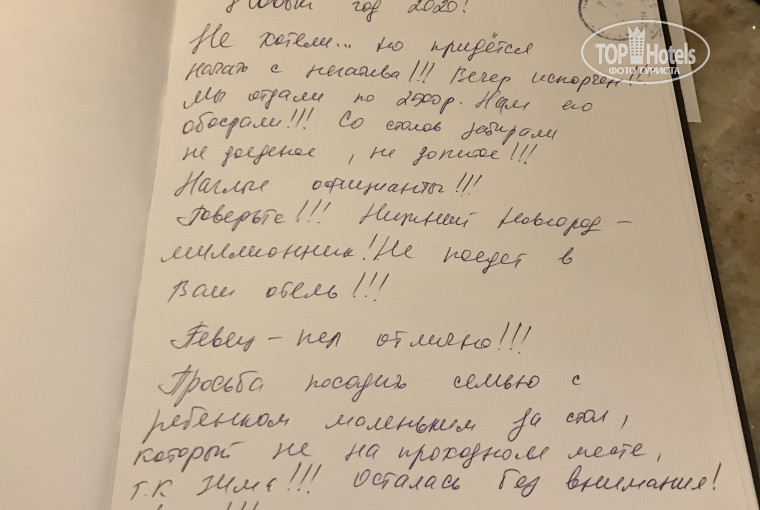 Новый год 2020!
Не хотели... но придётся
начать с негатива!!! Вечер испорчен!!!
Мы отдали по 2500р. Нам его
обосрали!!! Со столов забирали
не доеденое, не допитое!!!
Наглые официанты!!!
Поверьте!!! Нижний Новгород –
миллионник! Не поедет в
Ваш отель!!!
Певец – пел отлично!!!
Просьба посадить семью с
ребенком маленьким за стол,
который не на проходном месте,
т.к зима!!! Осталась без внимания!
TOP Hotels
ФОТО ТУРИСТА